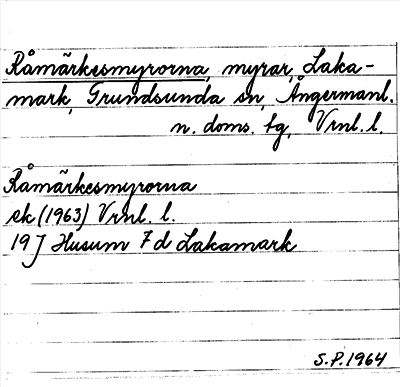 Råmärkesmyrorna, myrar, Laka-
mark, Grundsunda sn, Ångermanl.
n. doms. tg, Vrnl. l.
Råmärkesmyrorna
ek (1963) Vrnl. l.
19 J Husum 7 d Lakamark
S.P. 1964